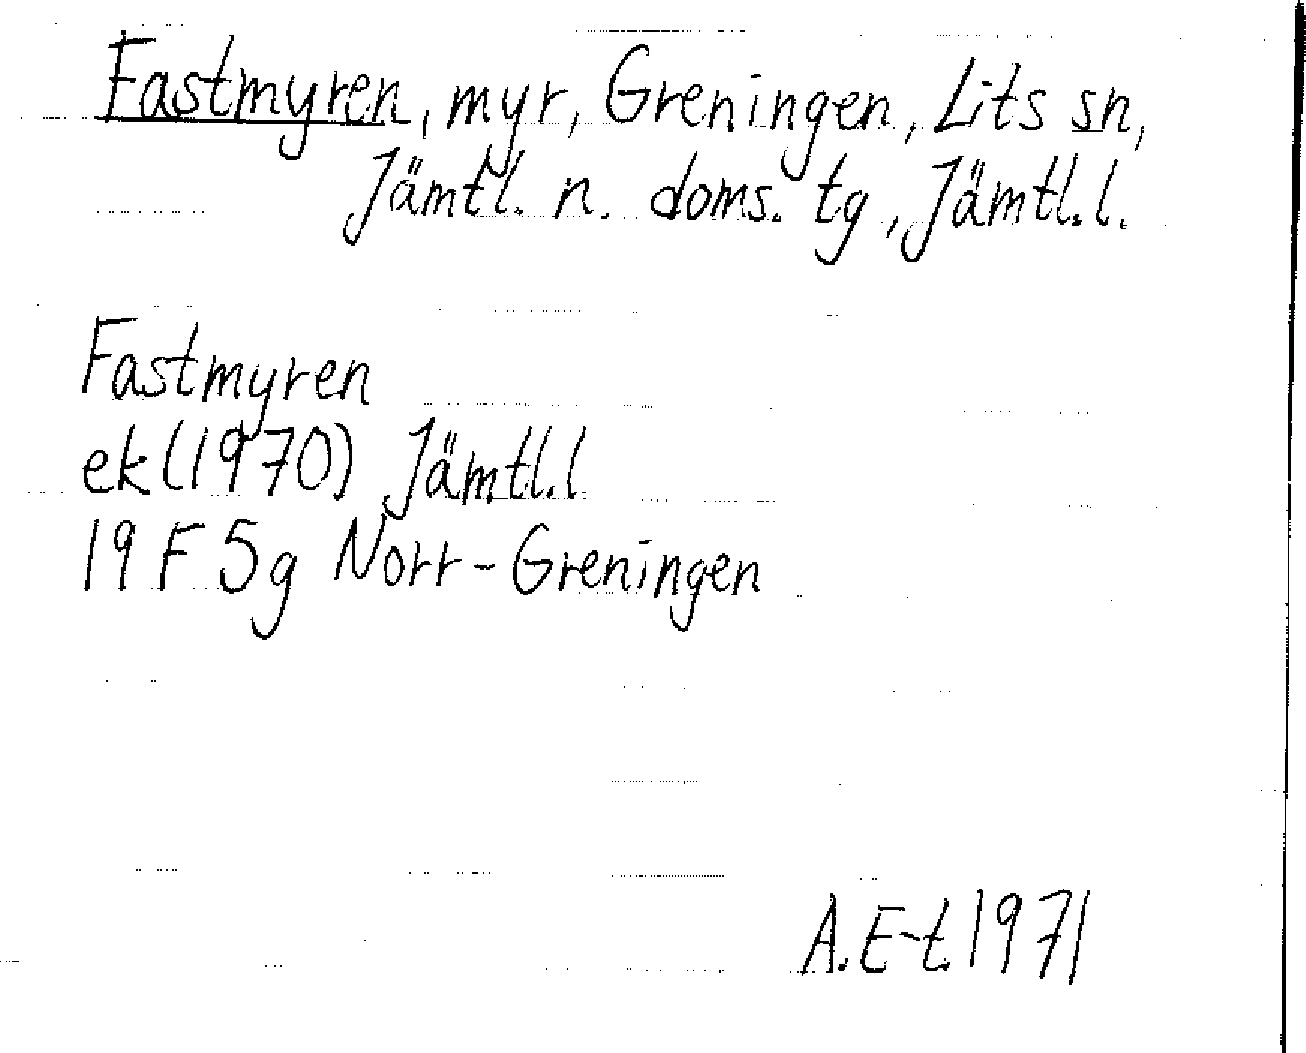 Fastmyren, myr, Greningen, Lits sn,
Jämtl. n. doms. tg, Jämtl.l.
Fastmyren
ek (1970) Jämtl.l
19 F 5g Norr-Greningen
A.E-t. 1971